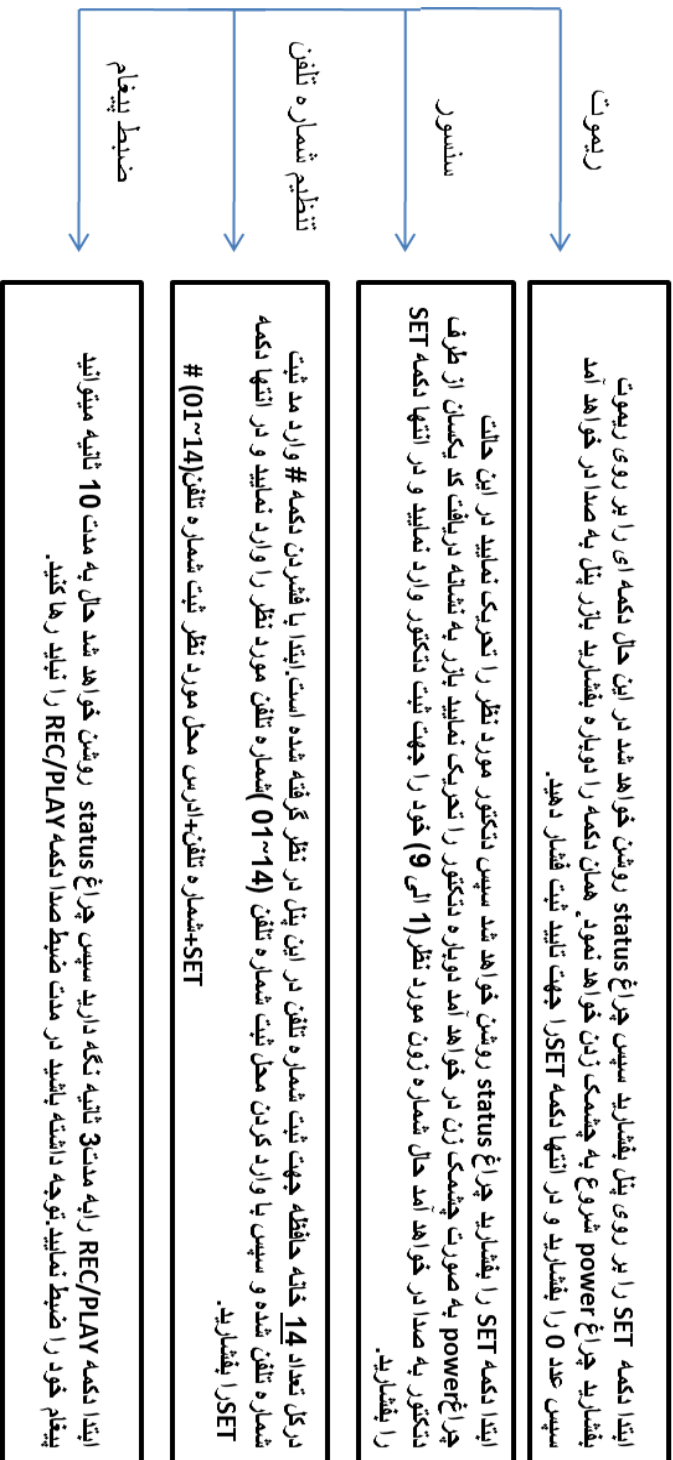 ریموت
ابتدا دکمه SET را بر روی پنل بفشارید سپس چراغ status روشن خواهد شد در این حال دکمه ای را بر روی ریموت
بفشارید چراغ power شروع به چشمک زدن خواهد نمود ٍ همان دکمه را دوباره بفشارید بازر پنل به صدا در خواهد آمد
سپس عدد 0 را بفشارید و در انتها دکمه SETرا جهت تایید ثبت فشار دهید.
سنسور
ابتدا دکمه SET را بفشارید چراغ status روشن خواهد شد سپس دتکتور مورد نظر را تحریک نمایید در این حالت
چراغpower به صورت چشمک زن در خواهد آمد دوباره دتکتور را تحریک نمایید بازر به نشانه دریافت کد یکسان از طرف
دتکتور به صدا در خواهد آمد حال شماره زون مورد نظر(1 الی 9) خود را جهت ثبت دتکتور وارد نمایید و در انتها دکمه SET
را بفشارید.
تنظیم شماره تلفن
درکل تعداد 14 خانه حافظه جهت ثبت شماره تلفن در این پنل در نظر گرفته شده است.ابتدا با فشردن دکمه # وارد مد ثبت
شماره تلفن شده و سپس با وارد کردن محل ثبت شماره تلفن (14~01 )شماره تلفن مورد نظر را وارد نمایید و در انتها دکمه
SETرا بفشارید.
SET+شماره تلفن+ادرس محل مورد نظر ثبت شماره تلفن(14~01) #
ضبط پیغام
ابتدا دکمه REC/PLAY رابه مدت3 ثانیه نگه دارید سپس چراغ status روشن خواهد شد حال به مدت 10 ثانیه میتوانید
پیغام خود را ضبط نمایید.توجه داشته باشید در مدت ضبط صدا دکمه REC/PLAY را نباید رها کنید.